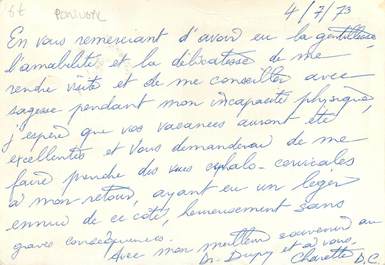 6€ PONTIVY 4/7/73
En vous remerciant d'avoir eu la gentillesse
l'amabilité et la délicatesse de me
rendre visite et de me conseiller avec
sagesse pendant mon incapacité physique,
j'espère que vos vacances auront été
excellentes et vous demanderai de me
faire prendre des vues cephalo-cervicales
à mon retour, ayant eu un léger
ennui de ce coté, heureusement sans
grave conséquences.
Avec mon meilleur souvenir au
Dr. Dupuy et à vous,
Charette D.C.